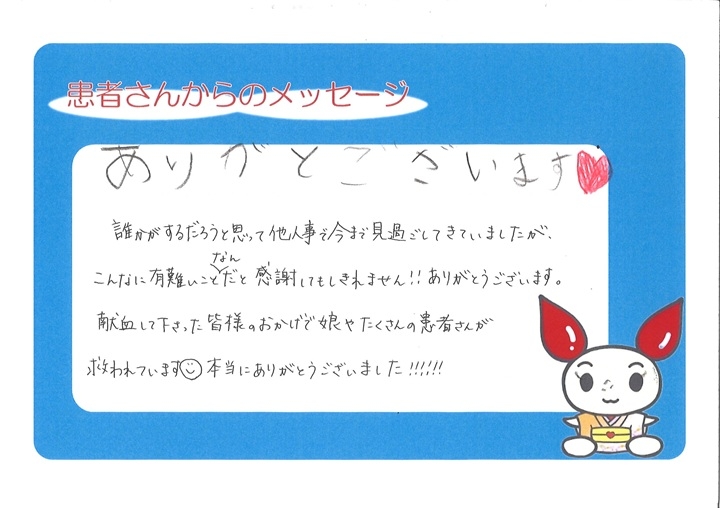 患者さんからのメッセージ
ありがとございます
誰かがするだろうと思って他人事で今まで見過ごしてきていましたが、
こんなに有難いことなんだと感謝してもしきれません!!ありがとうございます。
献血して下さった皆様のおかげで娘やたくさんの患者さんが
救われています 本当にありがとうございました!!!!!!